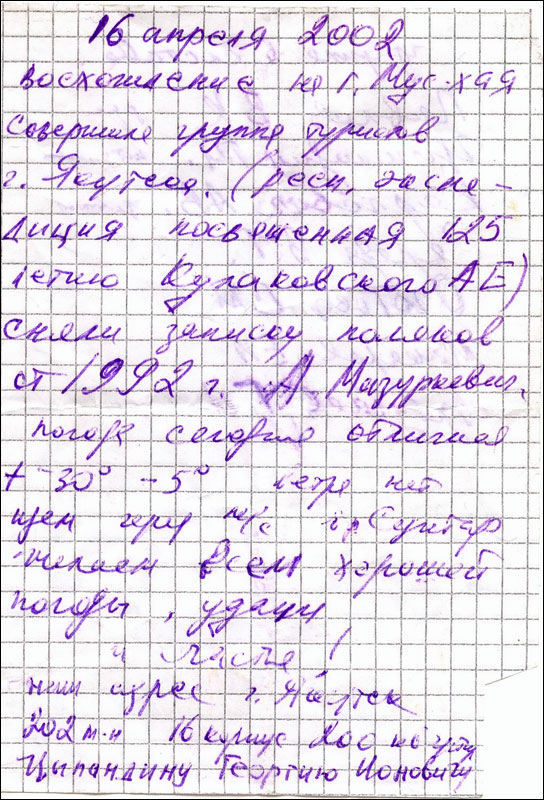 16 апреля 2002
Восхождение на г. Мус-хая
совершила группа туристов
г. Якутска. (респ. экспе-
диция посвященная 125
летию Кулаковского АЕ)
сняли записку поляков
от 1992 г. А. Мазуркевич.
погода сегодня отличная
t -30° -5° ветра нет
идем через пер Сунтар
желаем всем хорошей
погоды, удачи
и счастья!
наш адрес г. Якутск
202 м-н 16 корпус
Цыпандину Георгию Ионовичу